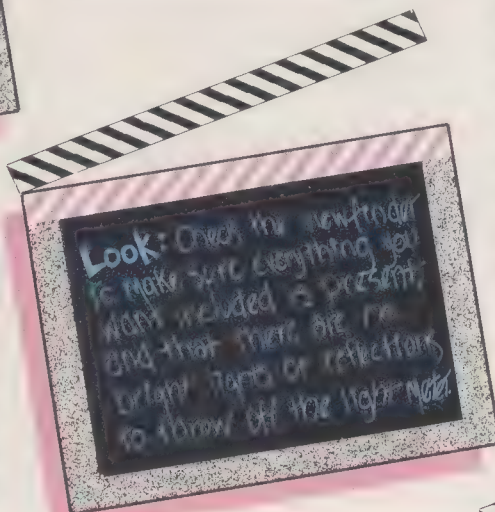 Look: Check the viewfinder
to make sure everything you
want included is present,
and that there are no
bright lights or reflections
to throw off the light meter.